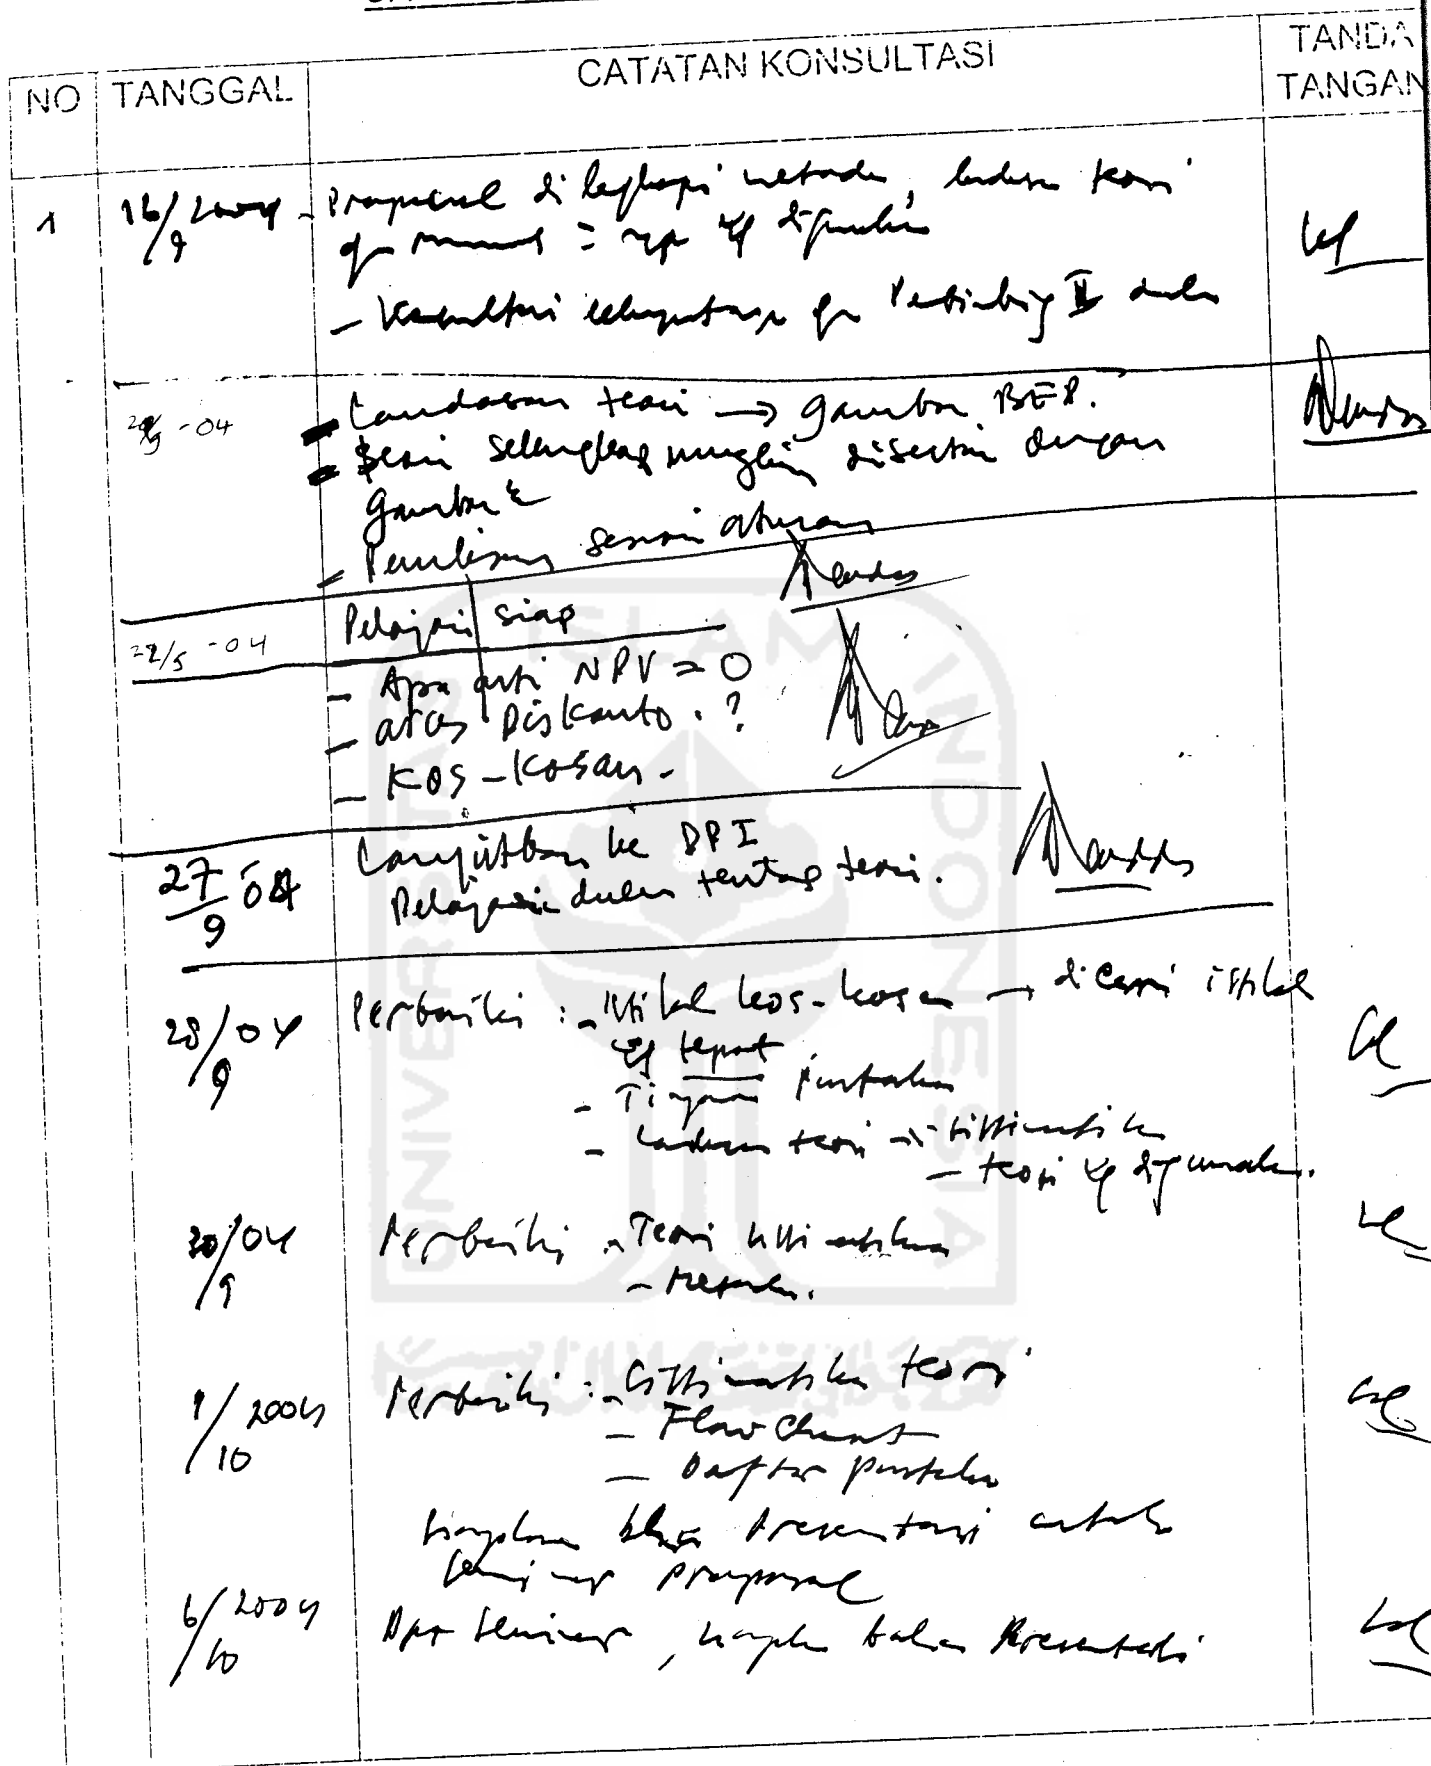 NO TANGGAL CATATAN KONSULTASI TANDA TANGAN
1 16/9 2004 - Proposal dilengkapi metode, landasan teori
yg digunakan
- Konsultasi selanjutnya Pembimbing II dulu
-04 Landasan teori → gambar BEP.
Teori selengkap mungkin disertai dengan
gambar
- Penulisan sesuai aturan
22/5 -04 Pelajari siap
- Apa arti NPV = 0
- atas Diskonto. ?
- Kos-kosan.
27/9 04 Lanjutkan ke DP I
Pelajari dulu tentang teori.
28/9 04 Perbaiki : - Istilah kos-kosan → dicari istilah
yg tepat
- Tinjauan pustaka
- Landasan teori → sistimatika
- teori yg digunakan.
30/9 04 Perbaiki - Teori sistimatika
- Metode.
1/10 2004 Perbaiki : - Sistimatika teori
- Flow Chart
- Daftar pustaka
Siapkan presentasi untuk
seminar proposal
6/10 2004 seminar, siapkan bahan Presentasi
UNIVERSITAS ISLAM INDONESIA